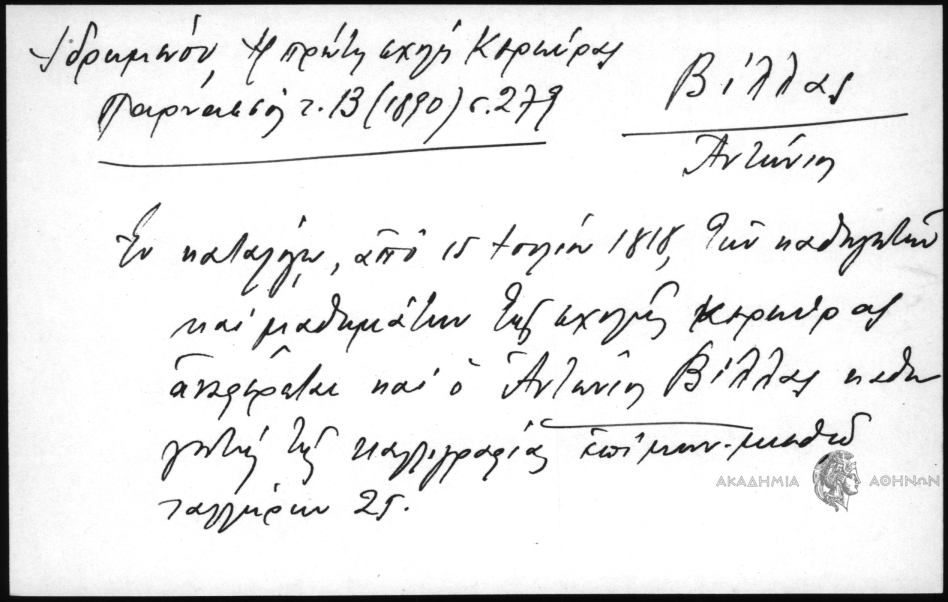 Ἰδρωμενοῦ, Ἡ πρώτη σχολὴ Κερκύρας
Παρνασσὸς τ. 13 (1890) σ. 279
Βίλλας
Ἀντώνιος
Ἐν καταλόγῳ, ἀπὸ 15 Ἰουλίου 1818, τῶν καθηγητῶν
καὶ μαθημάτων τῆς σχολῆς Κερκύρας
ἀναφέρεται καὶ ὁ Ἀντώνιος Βίλλας καθη
γητὴς τῆς καλλιγραφίας ἐπὶ μην. μισθῷ
ταλλήρων 25.
ΑΚΑΔΗΜΙΑ ΑΘΗΝΩΝ